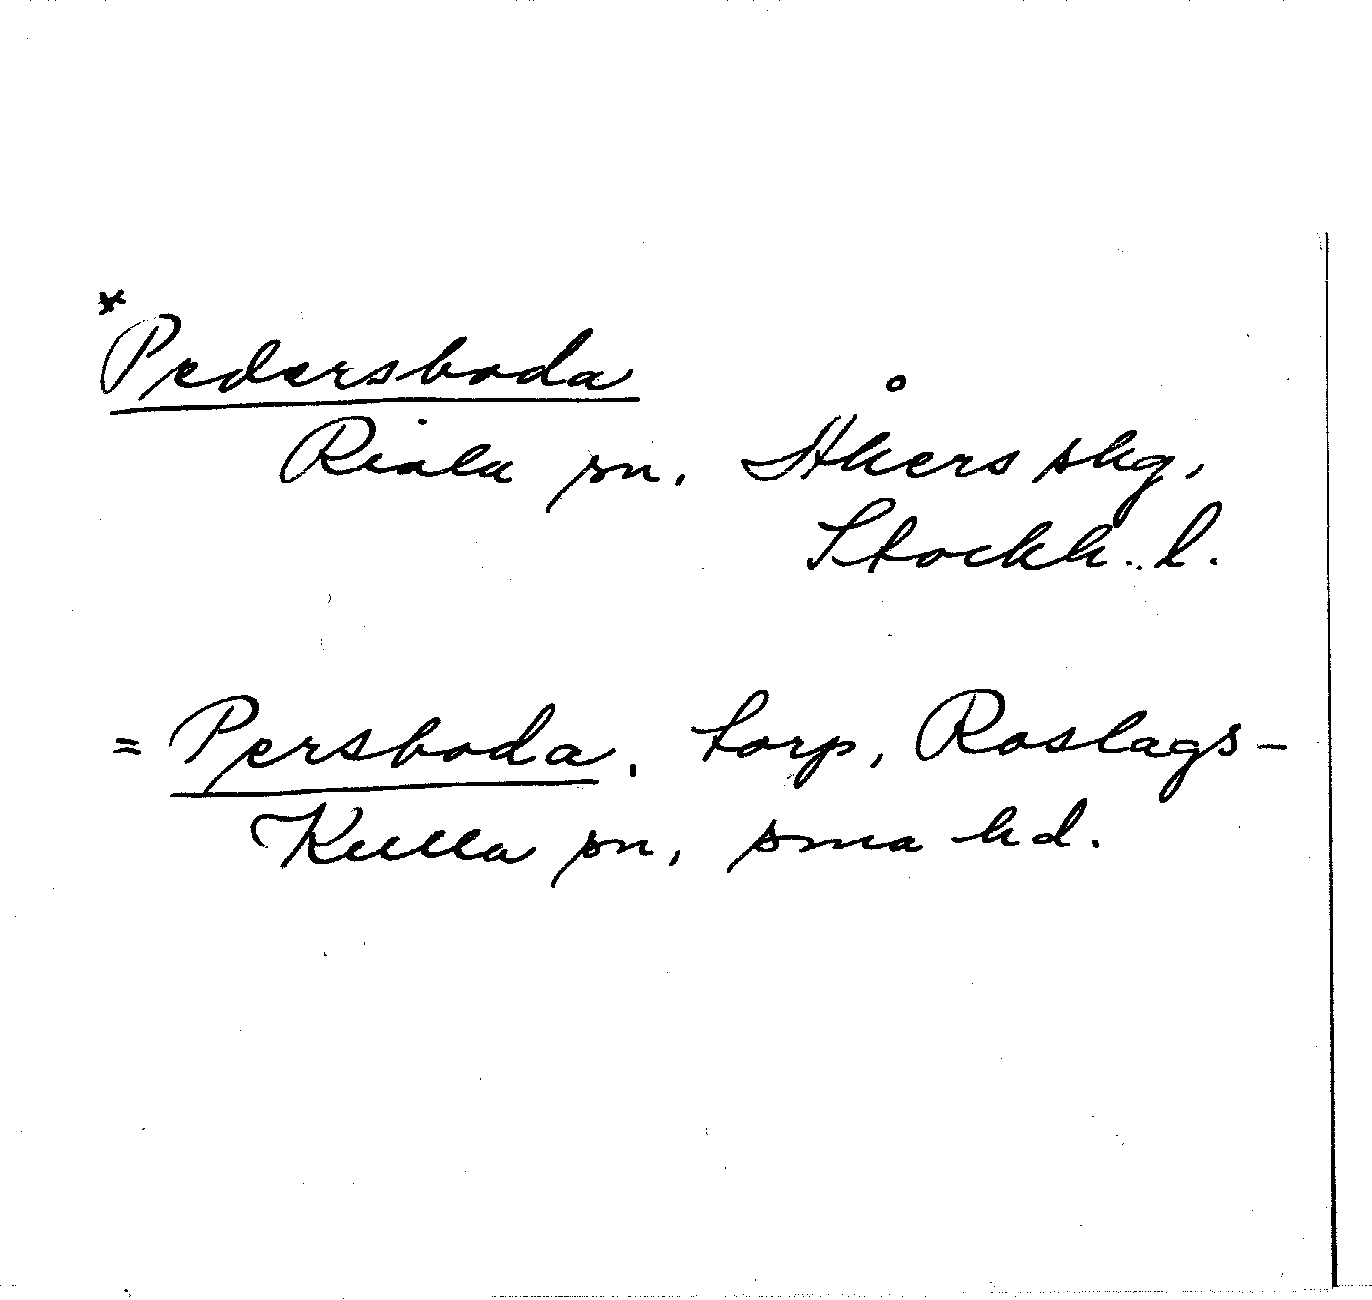 *
Pedersboda
Riala sn. Åkers skg,
Stockh. l.
= Persboda. torp, Roslags-
Kulla sn, sma hd.